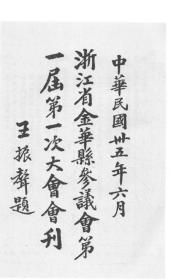 中華民國卅五年六月
浙江省金華縣參議會第
一屆第一次大會會刊
王振聲題